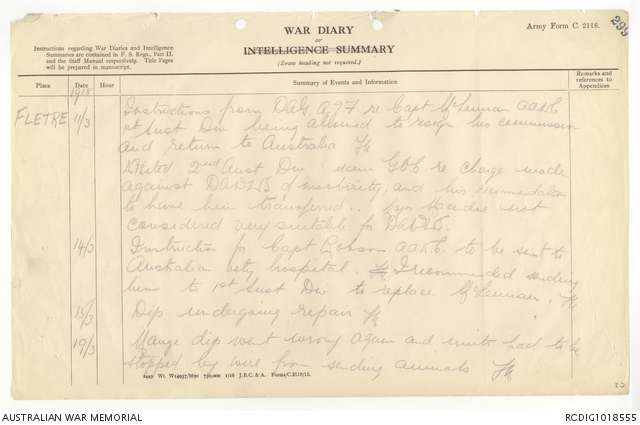 WAR DIARY
or
INTELLIGENCE SUMMARY
(Erase heading not required.)
Army Form C. 2118.
299
Instructions regarding War Diaries and Intelligence
Summaries are contained in F. S. Regs., Part II.
and the Staff Manual respectively. Title Pages
will be prepared in manuscript.
Place Date Hour Summary of Events and Information Remarks and references to Appendices
1918
FLETRE 11/3 Instructions from DAG A.9.7 re Capt McLennan AAVC
1st Aust Div being allowed to resign his commission
and return to Australia
Visited 2nd Aust Div seen GOC re charge made
against DADVS of and his
to have him transferred. not
considered very suitable for DADVS.
14/3 Instruction for Capt AAVC. to be sent to
Australian vety hospital. I recommended sending
him to 1st Aust Div to replace McLennan.
15/3 Dip undergoing repair
19/3 Mange dip went wrong again and units had to be
stopped by wire from sending animals
AUSTRALIAN WAR MEMORIAL
RCDIG1018555